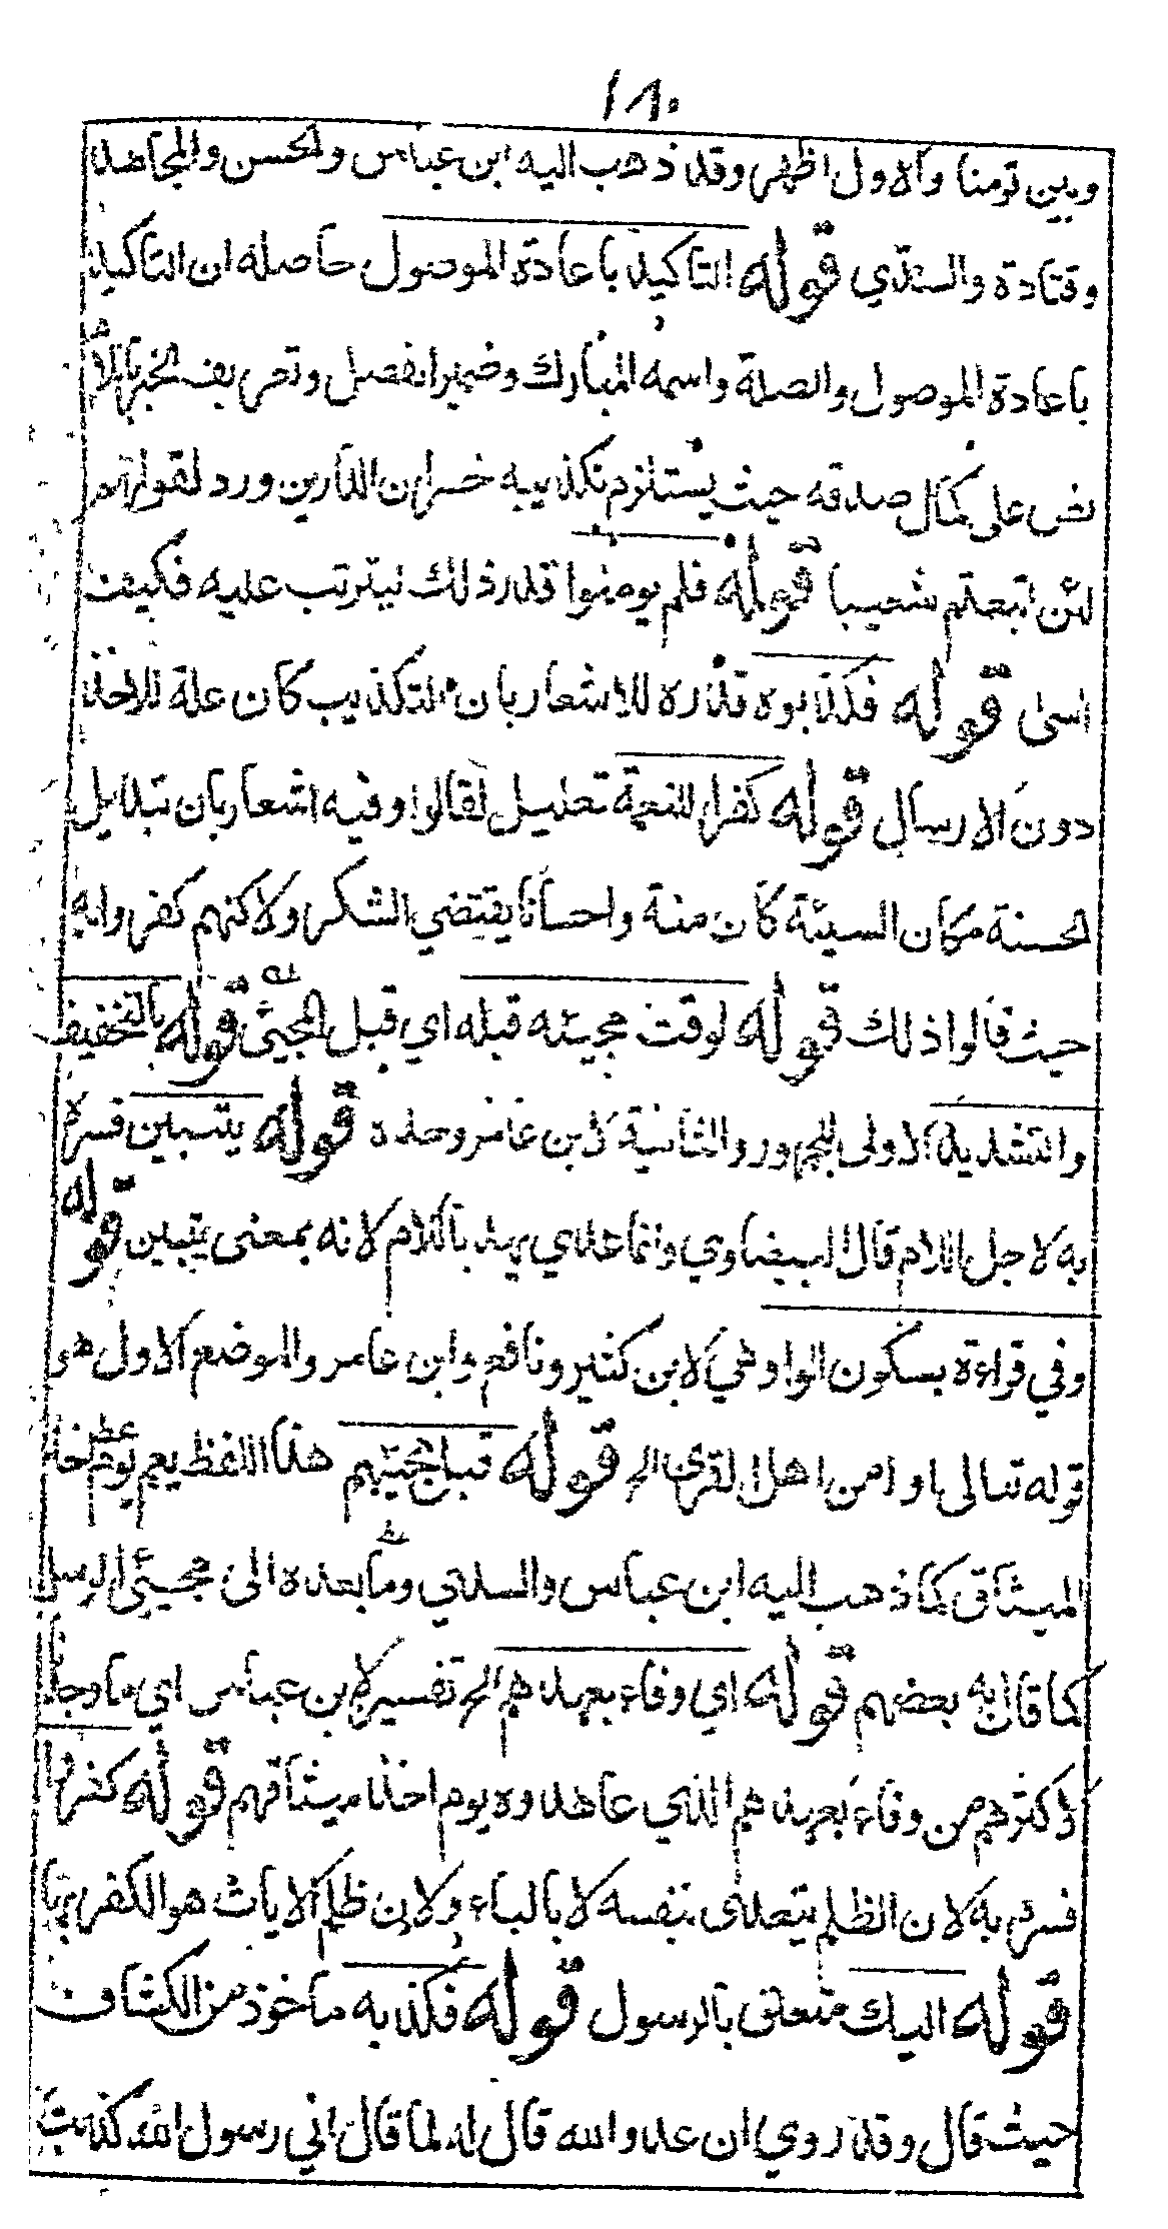 ١٨٠
وبين قومنا والاول اظهر وقد ذهب اليه ابن عباس والحسن والمجاهد
وقتادة والسدي قوله التاكيد باعادة الموصول حاصله ان التاكيد
باعادة الموصول والصلة واسمه المبارك وضمير الفصل وتعريف الخبر باللام
نص على كمال صدقه حيث يستلزم تكذيبه خسران الدارين ورد لقولهم
لئن اتبعتم شعيبا قوله فلم يومنوا قدر ذلك ليترتب عليه فكيف
اسى قوله فكذبوه قدره للاشعار بان التكذيب كان علة للاخذ
دون الارسال قوله كفرا للنعمة تعليل لقالوا وفيه اشعار بان تبديل
الحسنة مكان السيئة كان منة واحسانا يقتضي الشكر ولاكنهم كفروا به
حيث قالوا ذلك قوله لوقت مجيئه قبله اي قبل المجيئ قوله بالتخفيف
والتشديد الاولى للجمهور والثانية لابن عامر وحده قوله يتبين فسره
به لاجل اللام قال البيضاوي وانما عدي يهد باللام لانه بمعنى يتبين قوله
وفي قراءة بسكون الواو هي لابن كثير ونافع وابن عامر والموضع الاول هو
قوله تعالى او امن اهل القرى الخ قوله قبل مجيئهم هذا اللفظ يعم يوم اخذ
الميثاق كما ذهب اليه ابن عباس والسدي وما بعده الى مجيئ الرسل
كما قال به بعضهم قوله اي وفاء بعهدهم الخ تفسير لابن عباس اي ما وجدنا
لاكثرهم من وفاء بعهدهم الذي عاهدوه يوم اخذ ميثاقهم قوله كفروا
فسره به لان الظلم يتعدى بنفسه لا بالباء ولان ظلم الايات هو الكفر بها
قوله اليك متعلق بالرسول قوله فكذبه ماخوذ من الكشاف
حيث قال وقد روي ان عدو الله قال له لما قال اني رسول الله كذبت